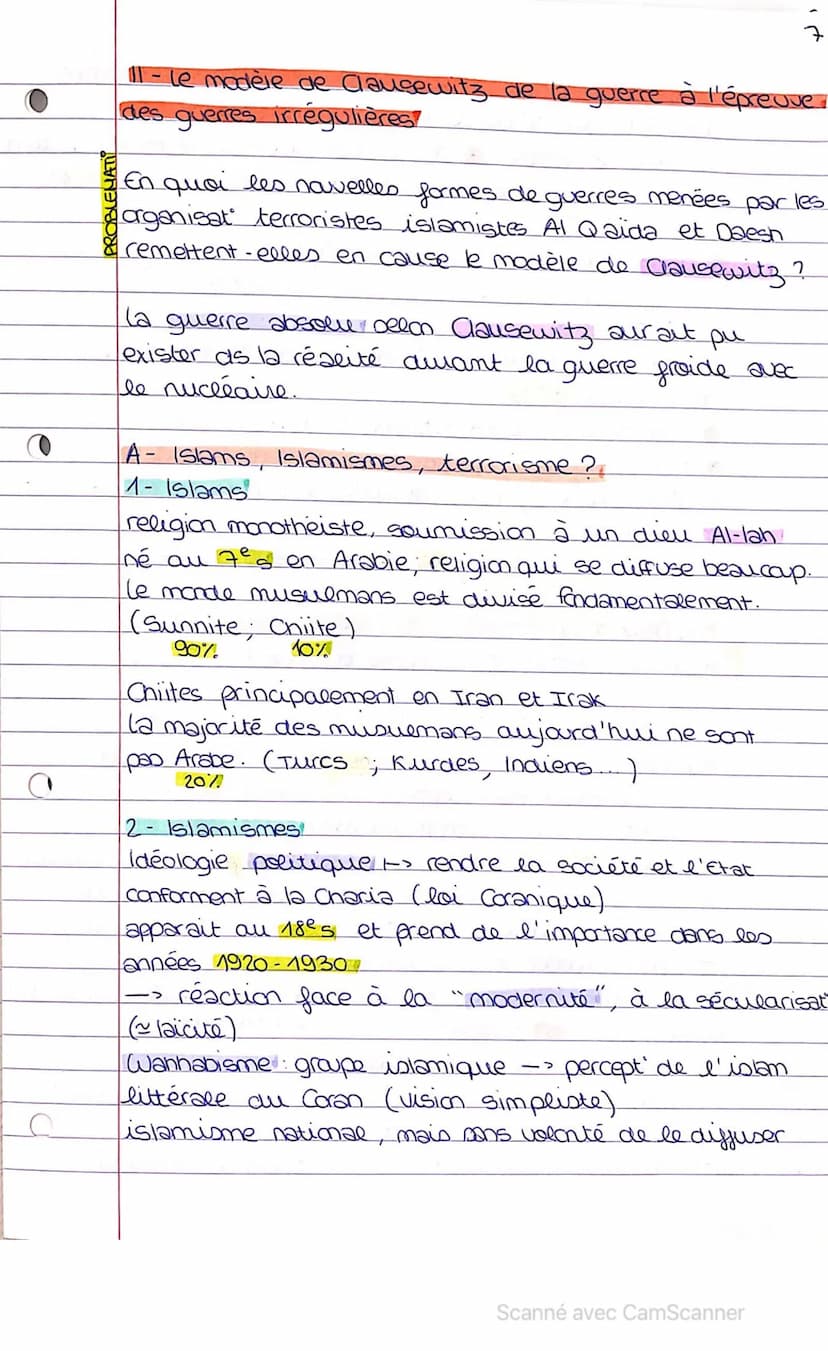 7
III - Le modèle de Clausewitz de la guerre à l'épreuve
des guerres irrégulières
PROBLEMATI°
En quoi les nouvelles formes de guerres menées par les
organisat° terroristes islamistes Al Qaida et Daesh
remettent-elles en cause le modèle de Clausewitz ?
La guerre absolue selon Clausewitz aurait pu
exister ds la réalité durant la guerre froide avec
le nucléaire.
A - Islams, Islamismes, terrorisme ?
1 - Islams
religion monothéiste, soumission à un dieu Al-lah
né au 7e s en Arabie, religion qui se diffuse beaucoup.
Le monde musulmans est divisé fondamentalement.
(Sunnite ; Chiite)
90% 10%
Chiites principalement en Iran et Irak
La majorité des musulmans aujourd'hui ne sont
pas Arabe. (Turcs ; Kurdes, Indiens...)
20%
2 - Islamismes
Idéologie politique |-> rendre la société et l'Etat
conforment à la Charia (loi Coranique)
apparait au 18e s et prend de l'importance dans les
années 1920-1930
-> réaction face à la "modernité", à la sécularisat°
(≃ laïcité)
Wahhabisme : groupe islamique -> percept° de l'islam
littérale du Coran (vision simpliste)
islamisme national, mais sans volonté de le diffuser
Scanné avec CamScanner